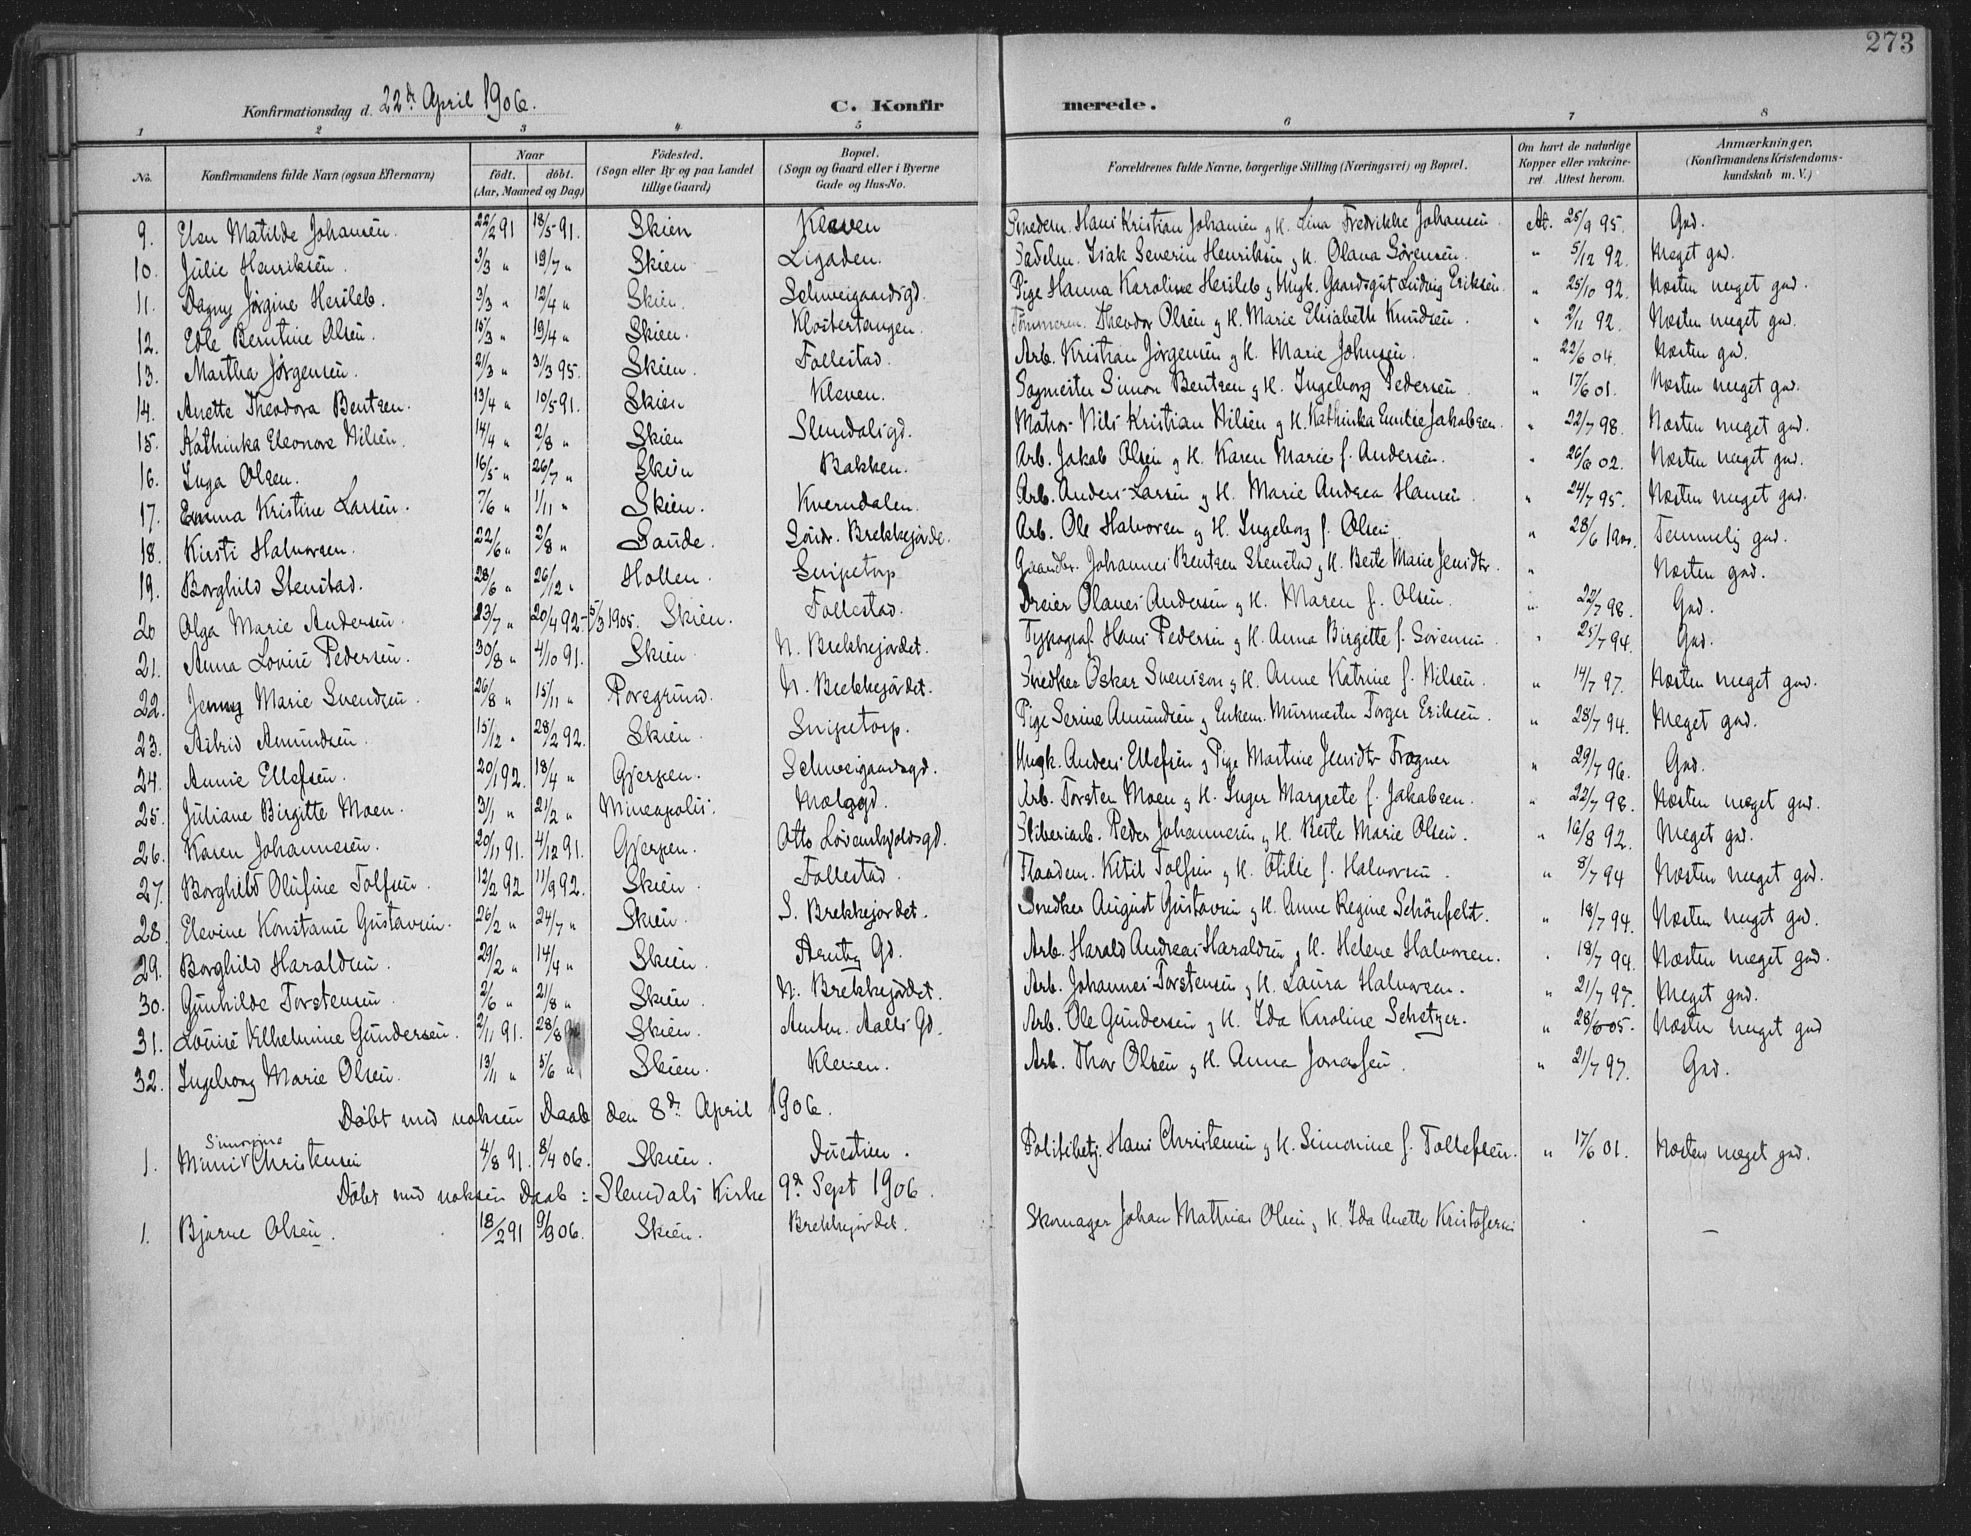 273
Konfirmationsdag d. 22de April 1906. C. Konfirmerede.
1 2 3 4 5 6 7 8
No. Konfirmandens fulde Navn (ogsaa Efternavn) Naar födt. döbt. (Aar, Maaned og Dag) Födested. (Sogn eller By og paa Landet tillige Gaard) Bopæl. (Sogn og Gaard eller i Byerne Gade og Hus-No. Forældrenes fulde Navne, borgerlige Stilling (Næringsvei) og Bopæl. Om havt de naturlige Kopper eller vakcineret. Attest herom. Anmærkninger. (Konfirmandens Kristendomskundskab m. V.)
9. Elen Matilde Johansen. 22/2 91 18/5 91. Skien Kleven Hans Kristian Johansen og H. Lina Fredrikke Johansen At. 25/9 95. God.
10. Julie Henriksen. 3/3 " 19/7 " Skien Ligaden. Sadelm. Isak Severin Henriksen og H. Olana Sörensen. " 5/12 92. Meget god.
11. Dagny Jörgine Hersleb. 3/3 " 12/4 " Skien. Schweigaardsgd. Pige Hanna Karoline Hersleb og Ungk. Gaardsgut Ludvig Eriksen " 25/10 92. Næsten meget god.
12. Edle Berntine Olsen. 15/3 " 19/4 " Skien. Klostertangen. Tömmerm. Theodor Olsen og H. Marie Elisabeth Knudsen. " 2/11 92. Næsten meget god.
13. Martha Jörgensen. 21/3 " 31/3 95. Skien. Follestad. Arb. Kristian Jörgensen og H. Marie Johnsen. " 22/6 04. Næsten god.
14. Anette Theodora Bentzen. 13/4 " 10/5 91. Skien Kleven. Sagmester Simon Bentzen og H. Ingeborg Pedersen " 17/6 01. Næsten meget god.
15. Kathinka Eleonore Nilsen. 14/4 " 2/8 " Skien Slemdalsgd. Matros Nils Kristian Nilsen og H. Kathinka Emilie Jakobsen. " 22/7 98. Næsten meget god.
16. Inga Olsen. 16/5 " 26/7 " Skien Bakken. Arb. Jakob Olsen og H. Karen Marie f. Andersen. " 26/6 02. Næsten meget god.
17. Emma Kristine Larsen. 7/6 " 1/11 " Skien. Kverndalen. Arb. Anders Larsen og H. Marie Andrea Hansen. " 24/7 95. Næsten meget god.
18. Kirsti Halvorsen. 22/6 " 2/8 " Saude. Söndr. Brekkejorde. Arb. Ole Halvorsen og H. Ingeborg f. Olsen " 28/6 1900. Temmelig god.
19. Borghild Stenstad. 28/6 " 26/12 " Hollen. Snipetorp Gaardbr. Johannes Bentzen Stenstad og H. Berte Marie Jensdtr. " Næsten god.
20 Olga Marie Andersen. 23/7 " 20/4 92 - 5/3 1905. Skien. Follestad. Dreier Olaves Andersen og H. Maren f. Olsen. " 22/7 98. God.
21. Anna Lovise Pedersen. 30/8 " 4/10 91. Skien N. Brekkejordet. Typograf Hans Pedersen og H. Anna Birgitte f. Sörensen " 25/7 94. God.
22. Jenny Marie Svendsen. 26/8 " 15/11 " Porsgrund. N. Brekkejördet. Snedker Oskar Svenson og H. Anne Katrine f. Nilsen. " 14/7 97. Næsten meget god.
23. Astrid Amundsen. 15/12 " 28/2 92. Skien. Snipetorp. Pige Serine Amundsen og Enkem. Murmester Torger Eriksen. " 28/7 94. Meget god.
24. Annie Ellefsen. 20/1 92. 18/4 " Gjerpen. Schweigaardsgd. Ungk. Anders Ellefsen og Pige Martine Jensdtr Frogner " 29/7 96. God.
25. Juliane Birgitte Moen. 31/1 " 21/2 " Mineapolis. Mælggd. Arb. Torsten Moen og H. Inger Margrete f. Jakobsen. " 22/7 98. Næsten meget god.
26. Karen Johannesen. 20/11 91. 4/12 91. Gjerpen. Otto Lövenskjoldsgd. Sliberiarb. Peder Johannesen og H. Berte Marie Olsen. " 16/8 92. Meget god.
27. Borghild Olufine Tolfsen. 12/2 92 11/9 92. Skien. Follestad. Flaadem. Kitil Tolfsen og H. Otilie f. Halvorsen. " 8/7 94 Næsten meget god.
28. Elevine Konstanse Gustavsen. 26/2 " 24/7 " Skien. S. Brekkejordet. Snedker August Gustavsen og H. Anne Regine Schönfeldt. " 18/7 94. Næsten meget god.
29. Borghild Haraldsen. 29/2 " 14/4 " Skien. Arnby Gd. Arb. Harald Andreas Haraldsen og H. Helene Halvorsen. " 18/7 94. Næsten meget god.
30. Gunhilde Torstensen. 2/6 " 21/8 " Skien. N. Brekkejordet. Arb. Johannes Torstensen og H. Laura Halvorsen. " 21/7 97. Meget god.
31. Lovise Vilhelmine Gundersen. 2/11 91. 28/8 Skien. Amtm. Aalls Gd. Arb. Ole Gundersen og H. Ida Karoline Schetzer. " 28/6 05. Næsten meget god
32. Ingeborg Marie Olsen. 13/11 " 5/6 " Skien. Kleven. Arb. Thor Olsen og H. Anna Jonassen. " 21/7 97. God.
Döbt med voksen Daab den 8de April 1906.
1. Mimi Simonine Christensen 4/8 91. 8/4 06. Skien. Duestien. Politibetj. Hans Christensen og H. Simonine f. Tollefsen. " 17/6 01. Næsten meget god.
Döbt med voksen Daab: Slemdals Kirke 9de Sept 1906.
1. Bjarne Olsen. 18/2 91 9/9 06. Skien. Brekkejordet. Skomager Johan Mathias Olsen og H. Ida Anette Kristofersen . —